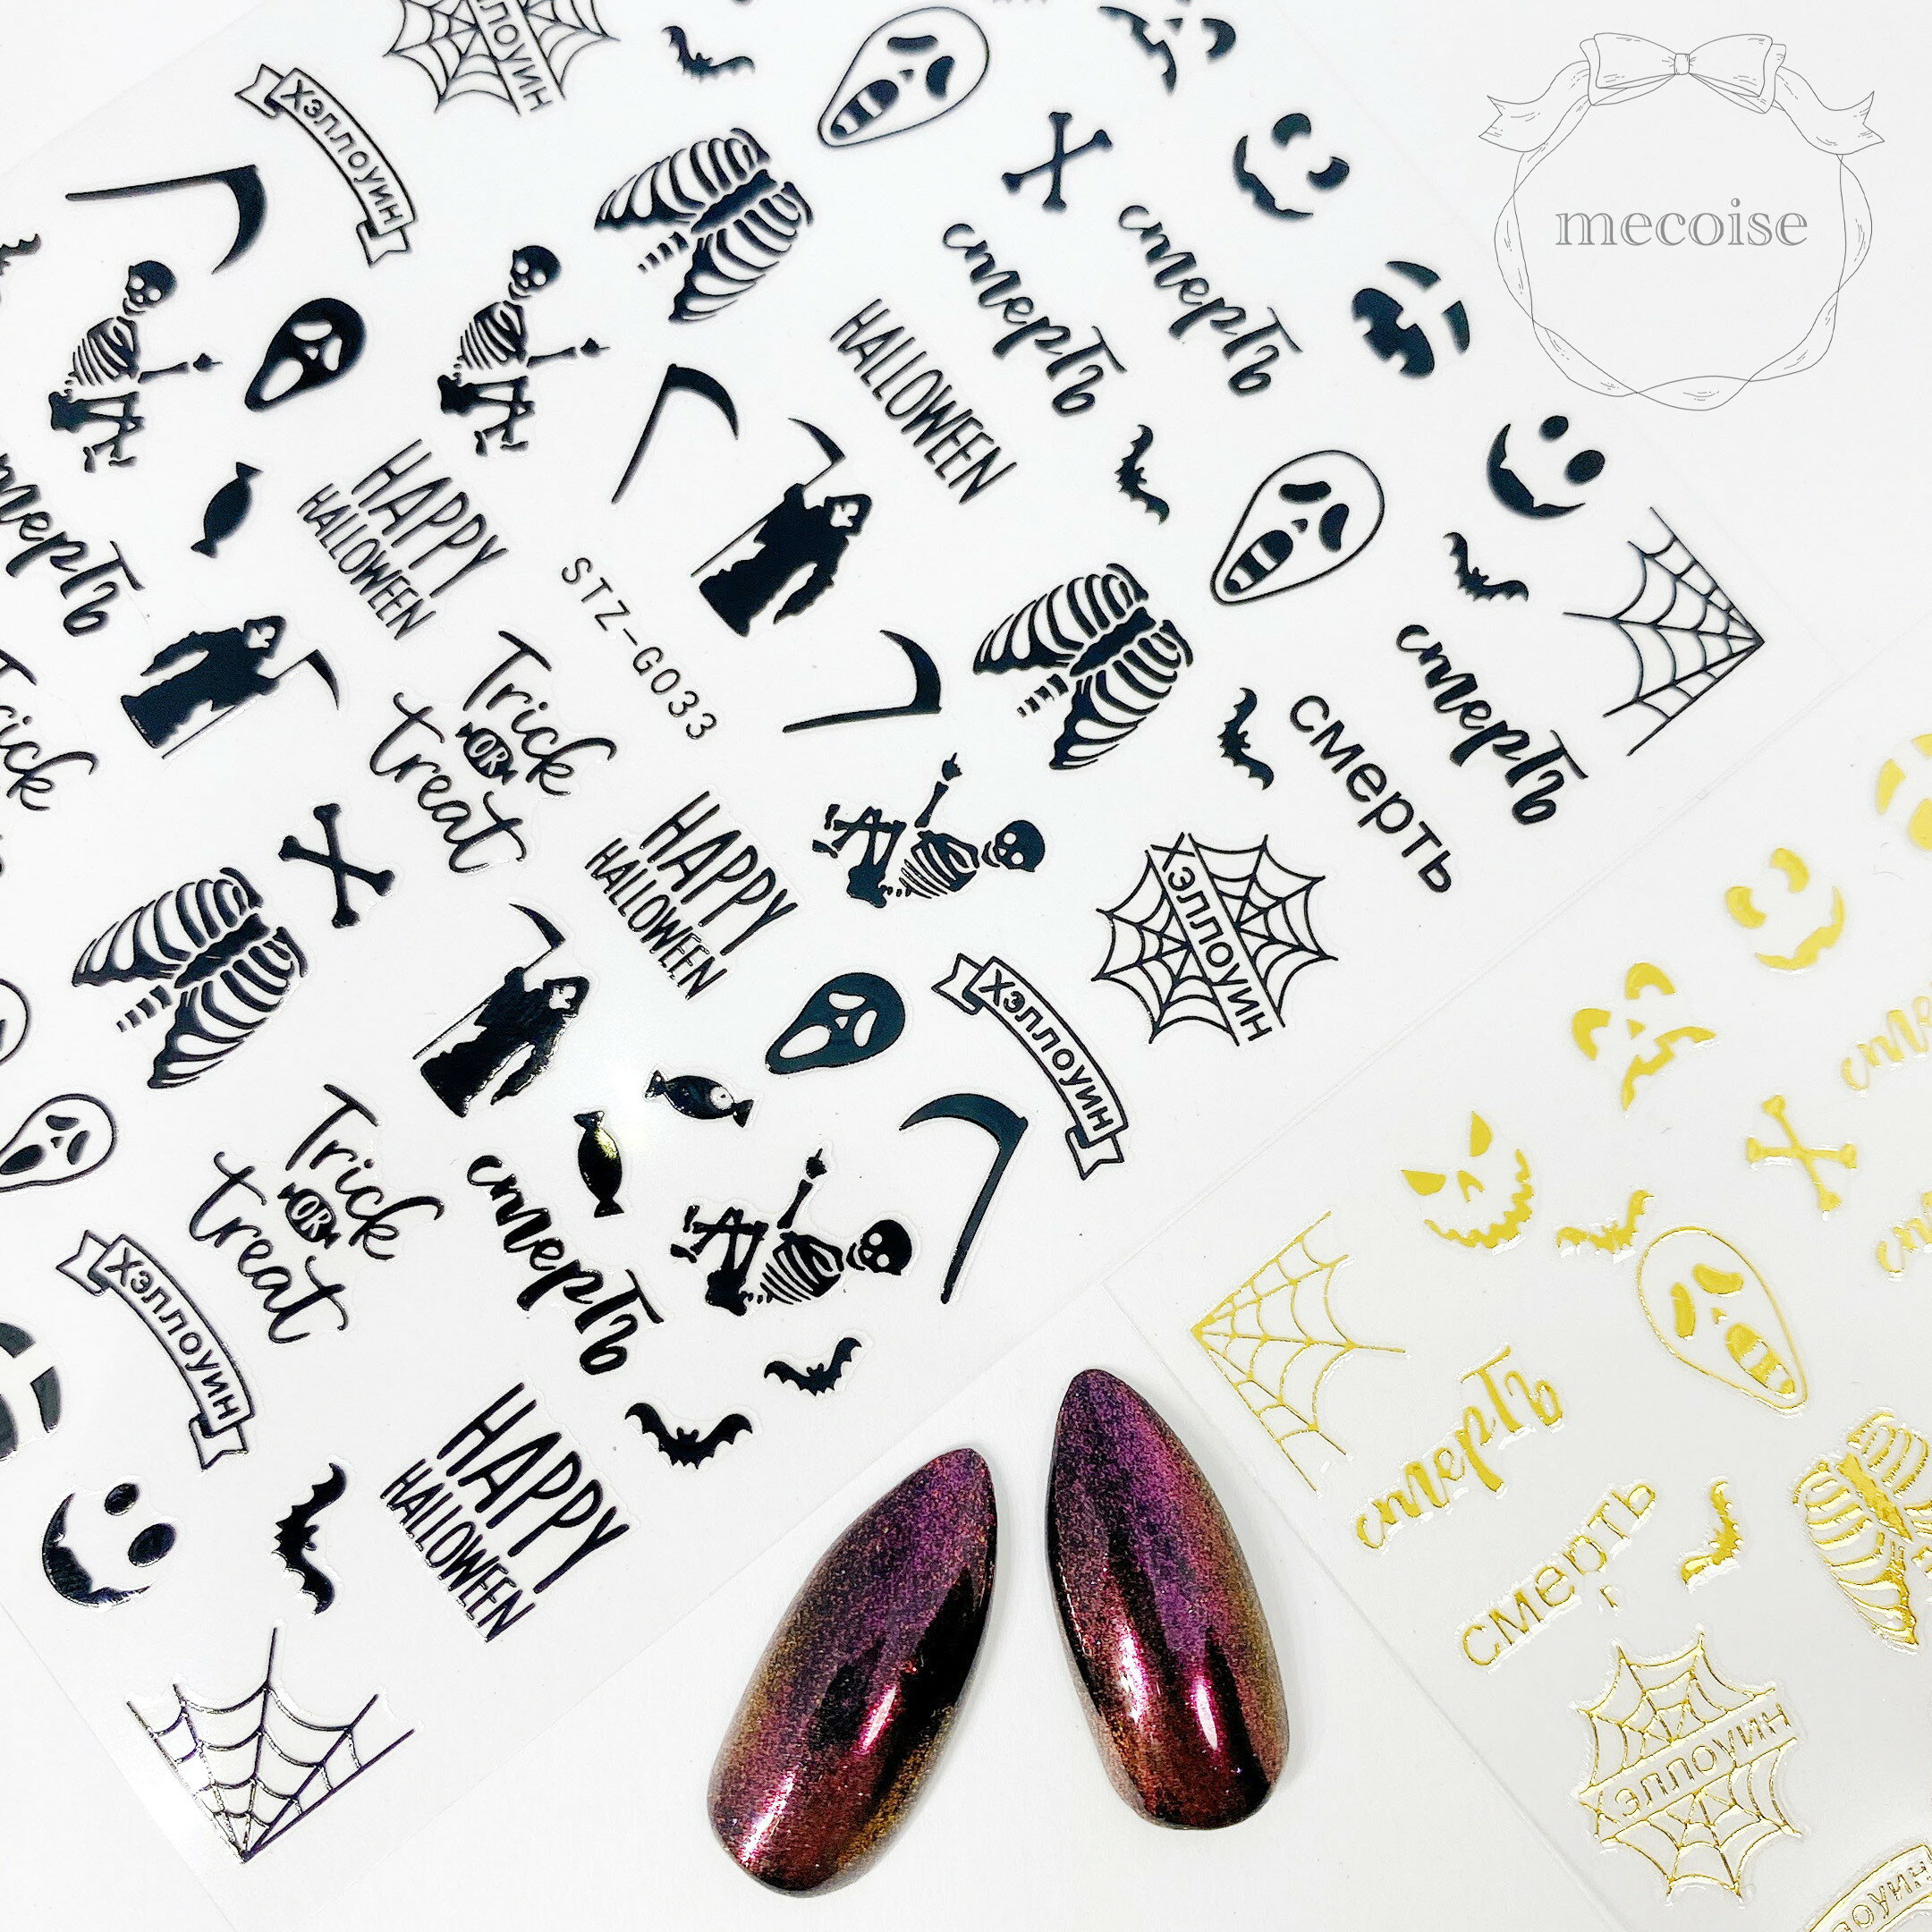 ЛОУИН
ХЭЛЛОУИН
mecoise
смерть
смерть
HALLOWEEN
HAPPY
HALLOWEEN
STZ-G033
мерть
Trick
OR
treat
rick
смерть
смерть
HAPPY
HALLOWEEN
ХЭЛЛОУИН
ХЭЛЛОУИН
Trick
OR
treat
смерть
ХЭЛЛОУИН
HAPPY
HALLOWEEN
смерть
смерть
ХЭЛЛОУИН